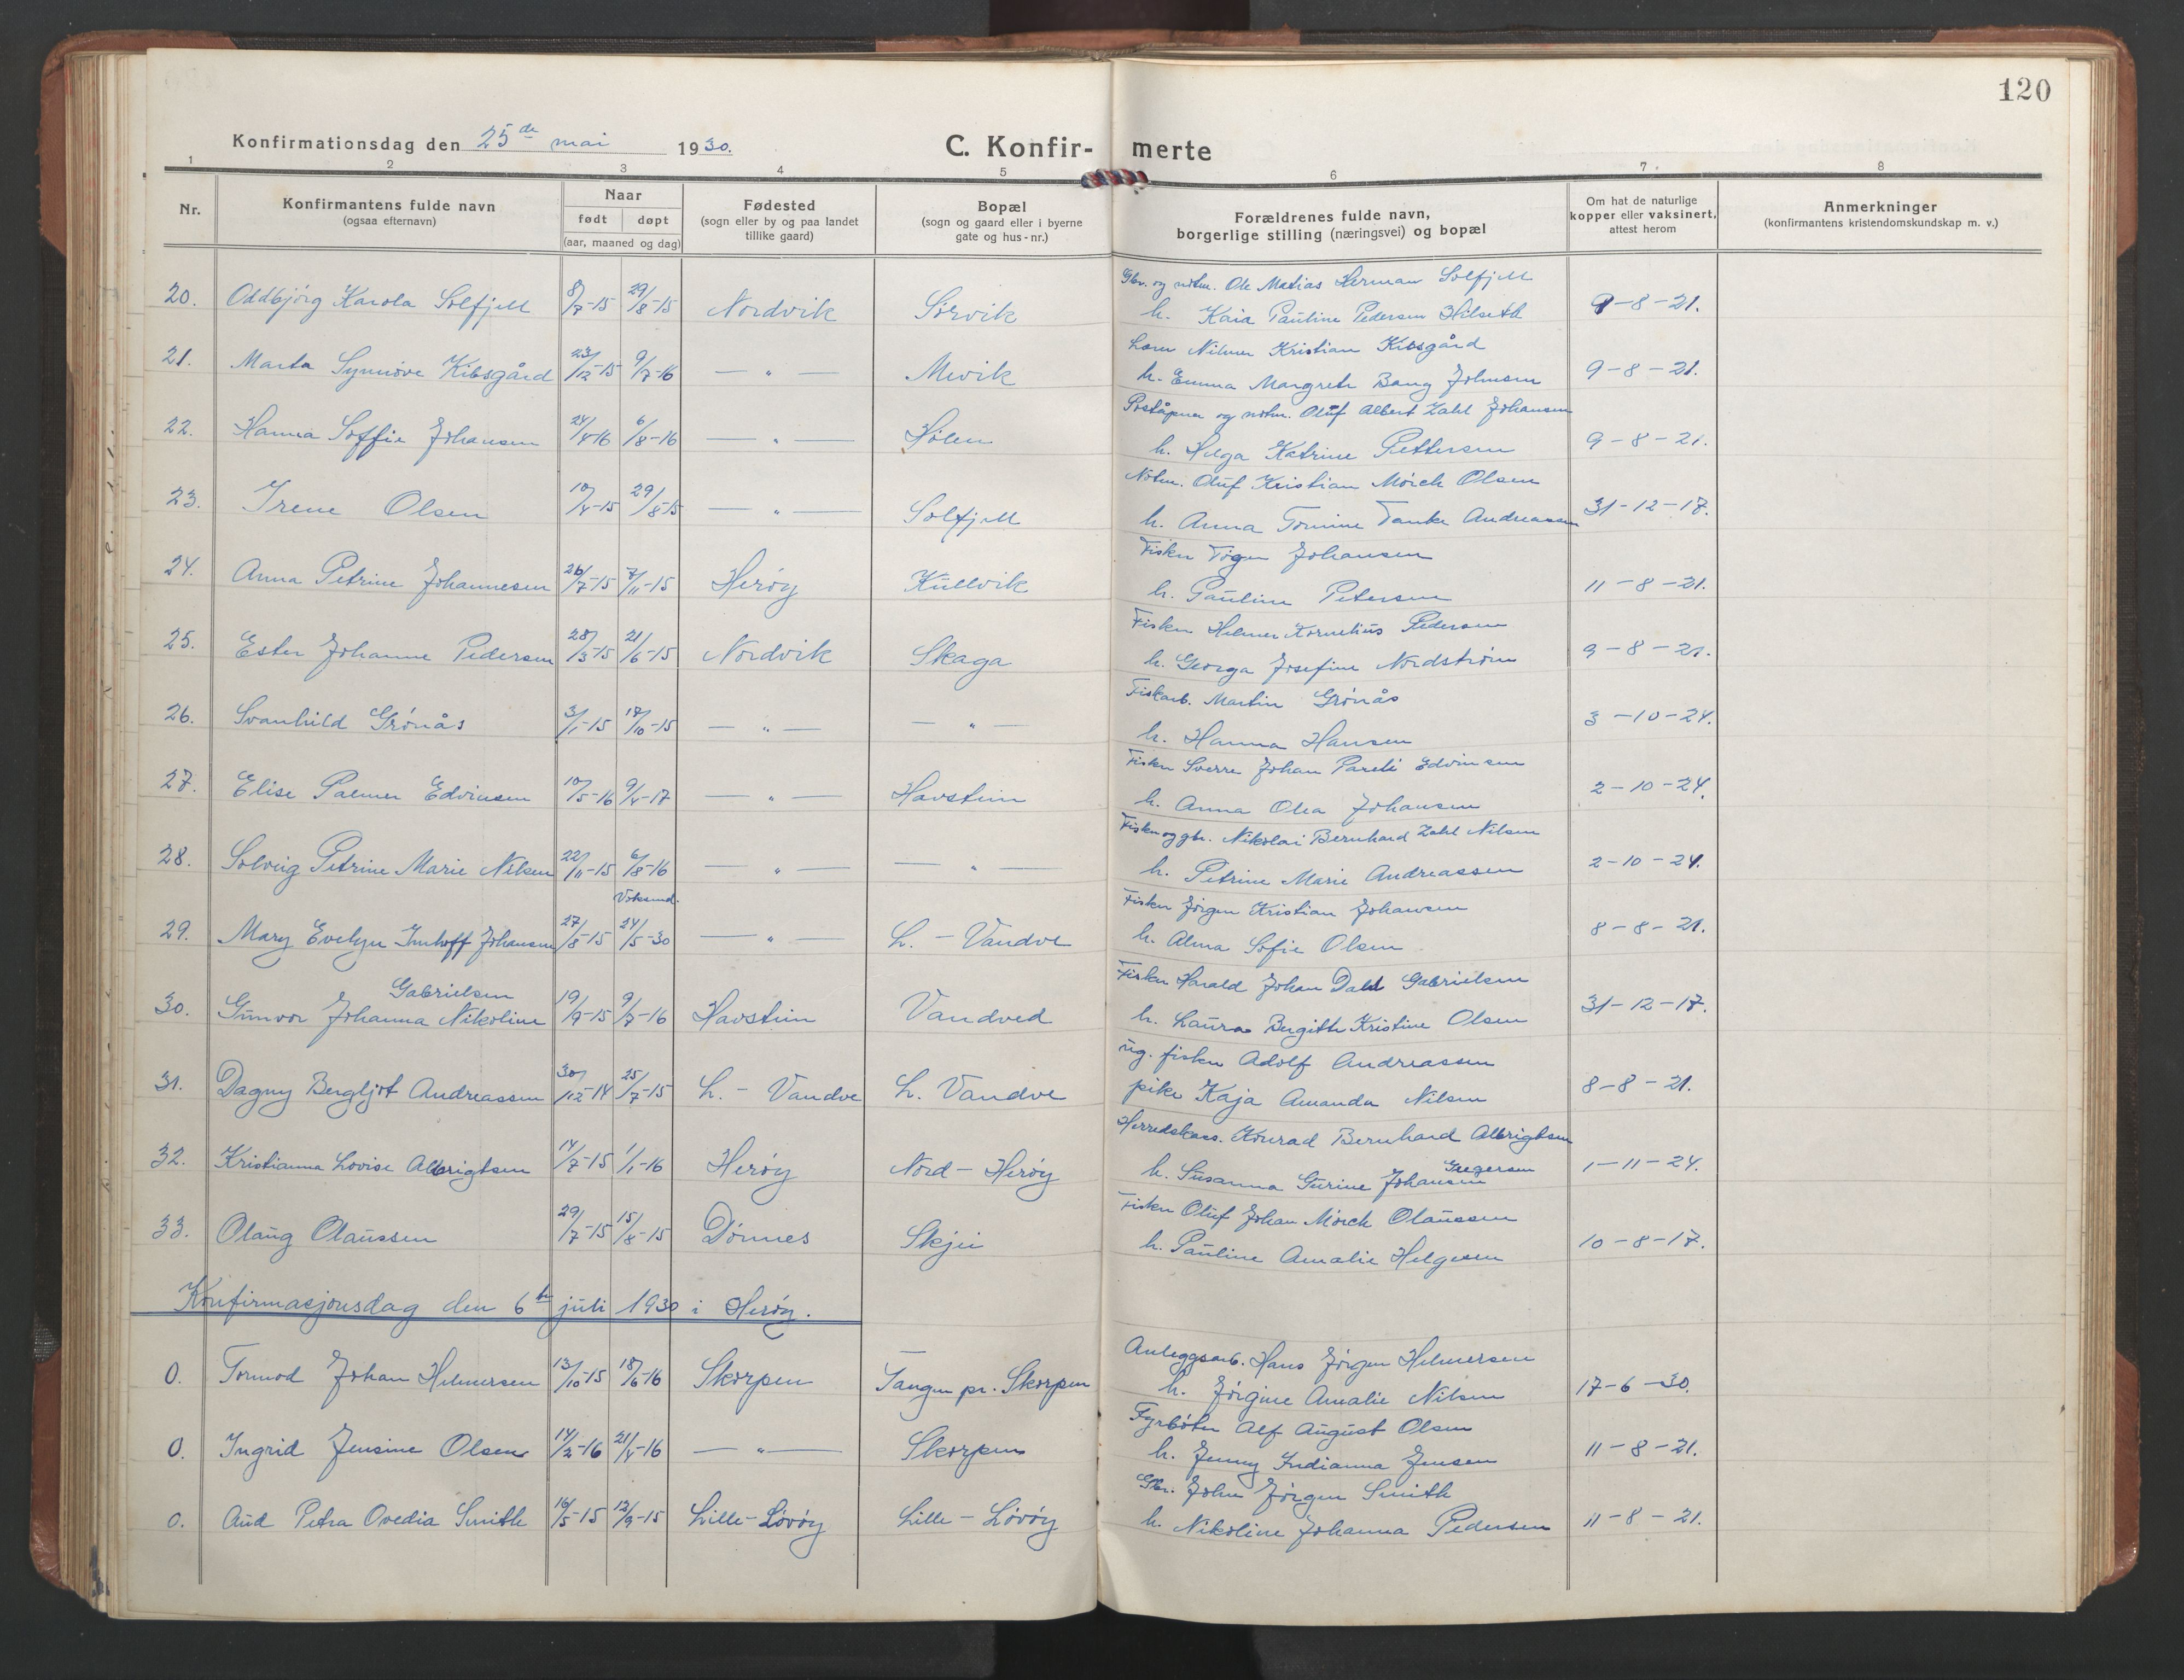 120
Konfirmationsdag den 25de mai 1930.
C. Konfirmerte
1 2 3 4 5 6 7 8
Nr.
Konfirmantens fulde navn
(ogsaa efternavn)
Naar
født døpt
(aar, maaned og dag)
Fødested
(sogn eller by og paa landet
tillike gaard)
Bopæl
(sogn og gaard eller i byerne
gate og hus-nr.)
Forældrenes fulde navn,
borgerlige stilling (næringsvei) og bopæl
Om hat de naturlige
kopper eller vaksinert,
attest herom
Anmerkninger
(konfirmantens kristendomskundskap m. v.)
Gbr. og notm. Ole Matias Herman Solfjell
20. Oddbjörg Karola Solfjell 8/7-15 29/8-15 Nordvik Sørvik h. Kaia Pauline Pedersen Hilseth 9-8-21.
Lærer Nilmer Kristian Kibsgård
21. Marta Synnöve Kibsgård 23/12-15 9/7-16 — " — Mevik h. Emma Margrete Bang Johnsen 9-8-21.
Poståpner og notm. Oluf Albert Zahl Johansen
22. Hanna Soffie Johansen 24/4-16 6/8-16 — " — Hølen h. Helga Katrine Pettersen 9-8-21.
Notm. Oluf Kristian Mörch Olsen
23. Irene Olsen 10/4-15 29/8-15 — " — Solfjell h. Anna Tomine Tanke Andreassen 31-12-17.
Fisker Töger Johansen
24. Anna Petrine Johannesen 26/7-15 7/11-15 Herøy Kullvik h. Pauline Petersen 11-8-21.
Fisker Helmer Kornelius Pedersen
25. Ester Johanne Pedersen 28/3-15 21/6-15 Nordvik Skaga h. Georga Josefine Nordström 9-8-21.
Fiskarb. Martin Grönås
26. Svanhild Grönås 3/1-15 17/10-15 — " — — " — h. Hanna Hansen 3-10-24.
Fisker Sverre Johan Pareli Edvinsen
27. Elise Palmer Edvinsen 10/5-16 9/4-17 — " — Havstein h. Anna Olea Johansen 2-10-24.
Fisker og gbr. Nikolai Bernhard Zahl Nilsen
28. Solveig Petrine Marie Nilsen 22/11-15 6/8-16 — " — — " — h. Petrine Marie Andreassen 2-10-24.
Voksend.
Fisker Jörgen Kristian Johansen
29. Mary Evelyn Imhoff Johansen 27/8-15 24/5-30 — " — L. - Vandve h. Alma Sofie Olsen 8-8-21.
Gabrielsen
Fisker Harald Johan Dahl Gabrielsen
30. Gunvor Johanna Nikoline 19/9-15 9/7-16 Havstein Vandved h. Laura Bergitte Kristine Olsen 31-12-17.
ug. fisker Adolf Andreassen
31. Dagny Bergljot Andreassen 30/12-14 25/7-15 L. - Vandve L. Vandve pike Kaja Amanda Nilsen 8-8-21.
Herredskass. Konrad Bernhard Albrigtsen
32. Kristianna Lovise Albrigtsen 14/7-15 1/1-16 Herøy Nord-Herøy h. Susanna Gurine Johansen Gregersen 1-11-24.
Fisker Oluf Johan Mörch Olaussen
33. Olaug Olaussen 29/7-15 15/8-15 Dönnes Skjei h. Pauline Amalie Helgesen 10-8-17.
Konfirmasjonsdag den 6te juli 1930 i Herøy.
Anleggsarb. Hans Jörgen Helmersen
0. Tormod Johan Helmersen 13/10-15 18/6-16 Skorpen Tangen pr. Skorpen h. Jörgine Amalie Nilsen 17-6-30.
Fyrböter Alf August Olsen
0. Ingrid Jensine Olsen 14/2-16 21/4-16 — " — Skorpen h. Jenny Indianna Jensen 11-8-21.
Gbr. John Jörgen Smith
0. Aud Petra Ovedia Smith 16/5-15 12/9-15 Lille-Lövöy Lille-Lövöy h. Nikoline Johanna Pedersen 11-8-21.